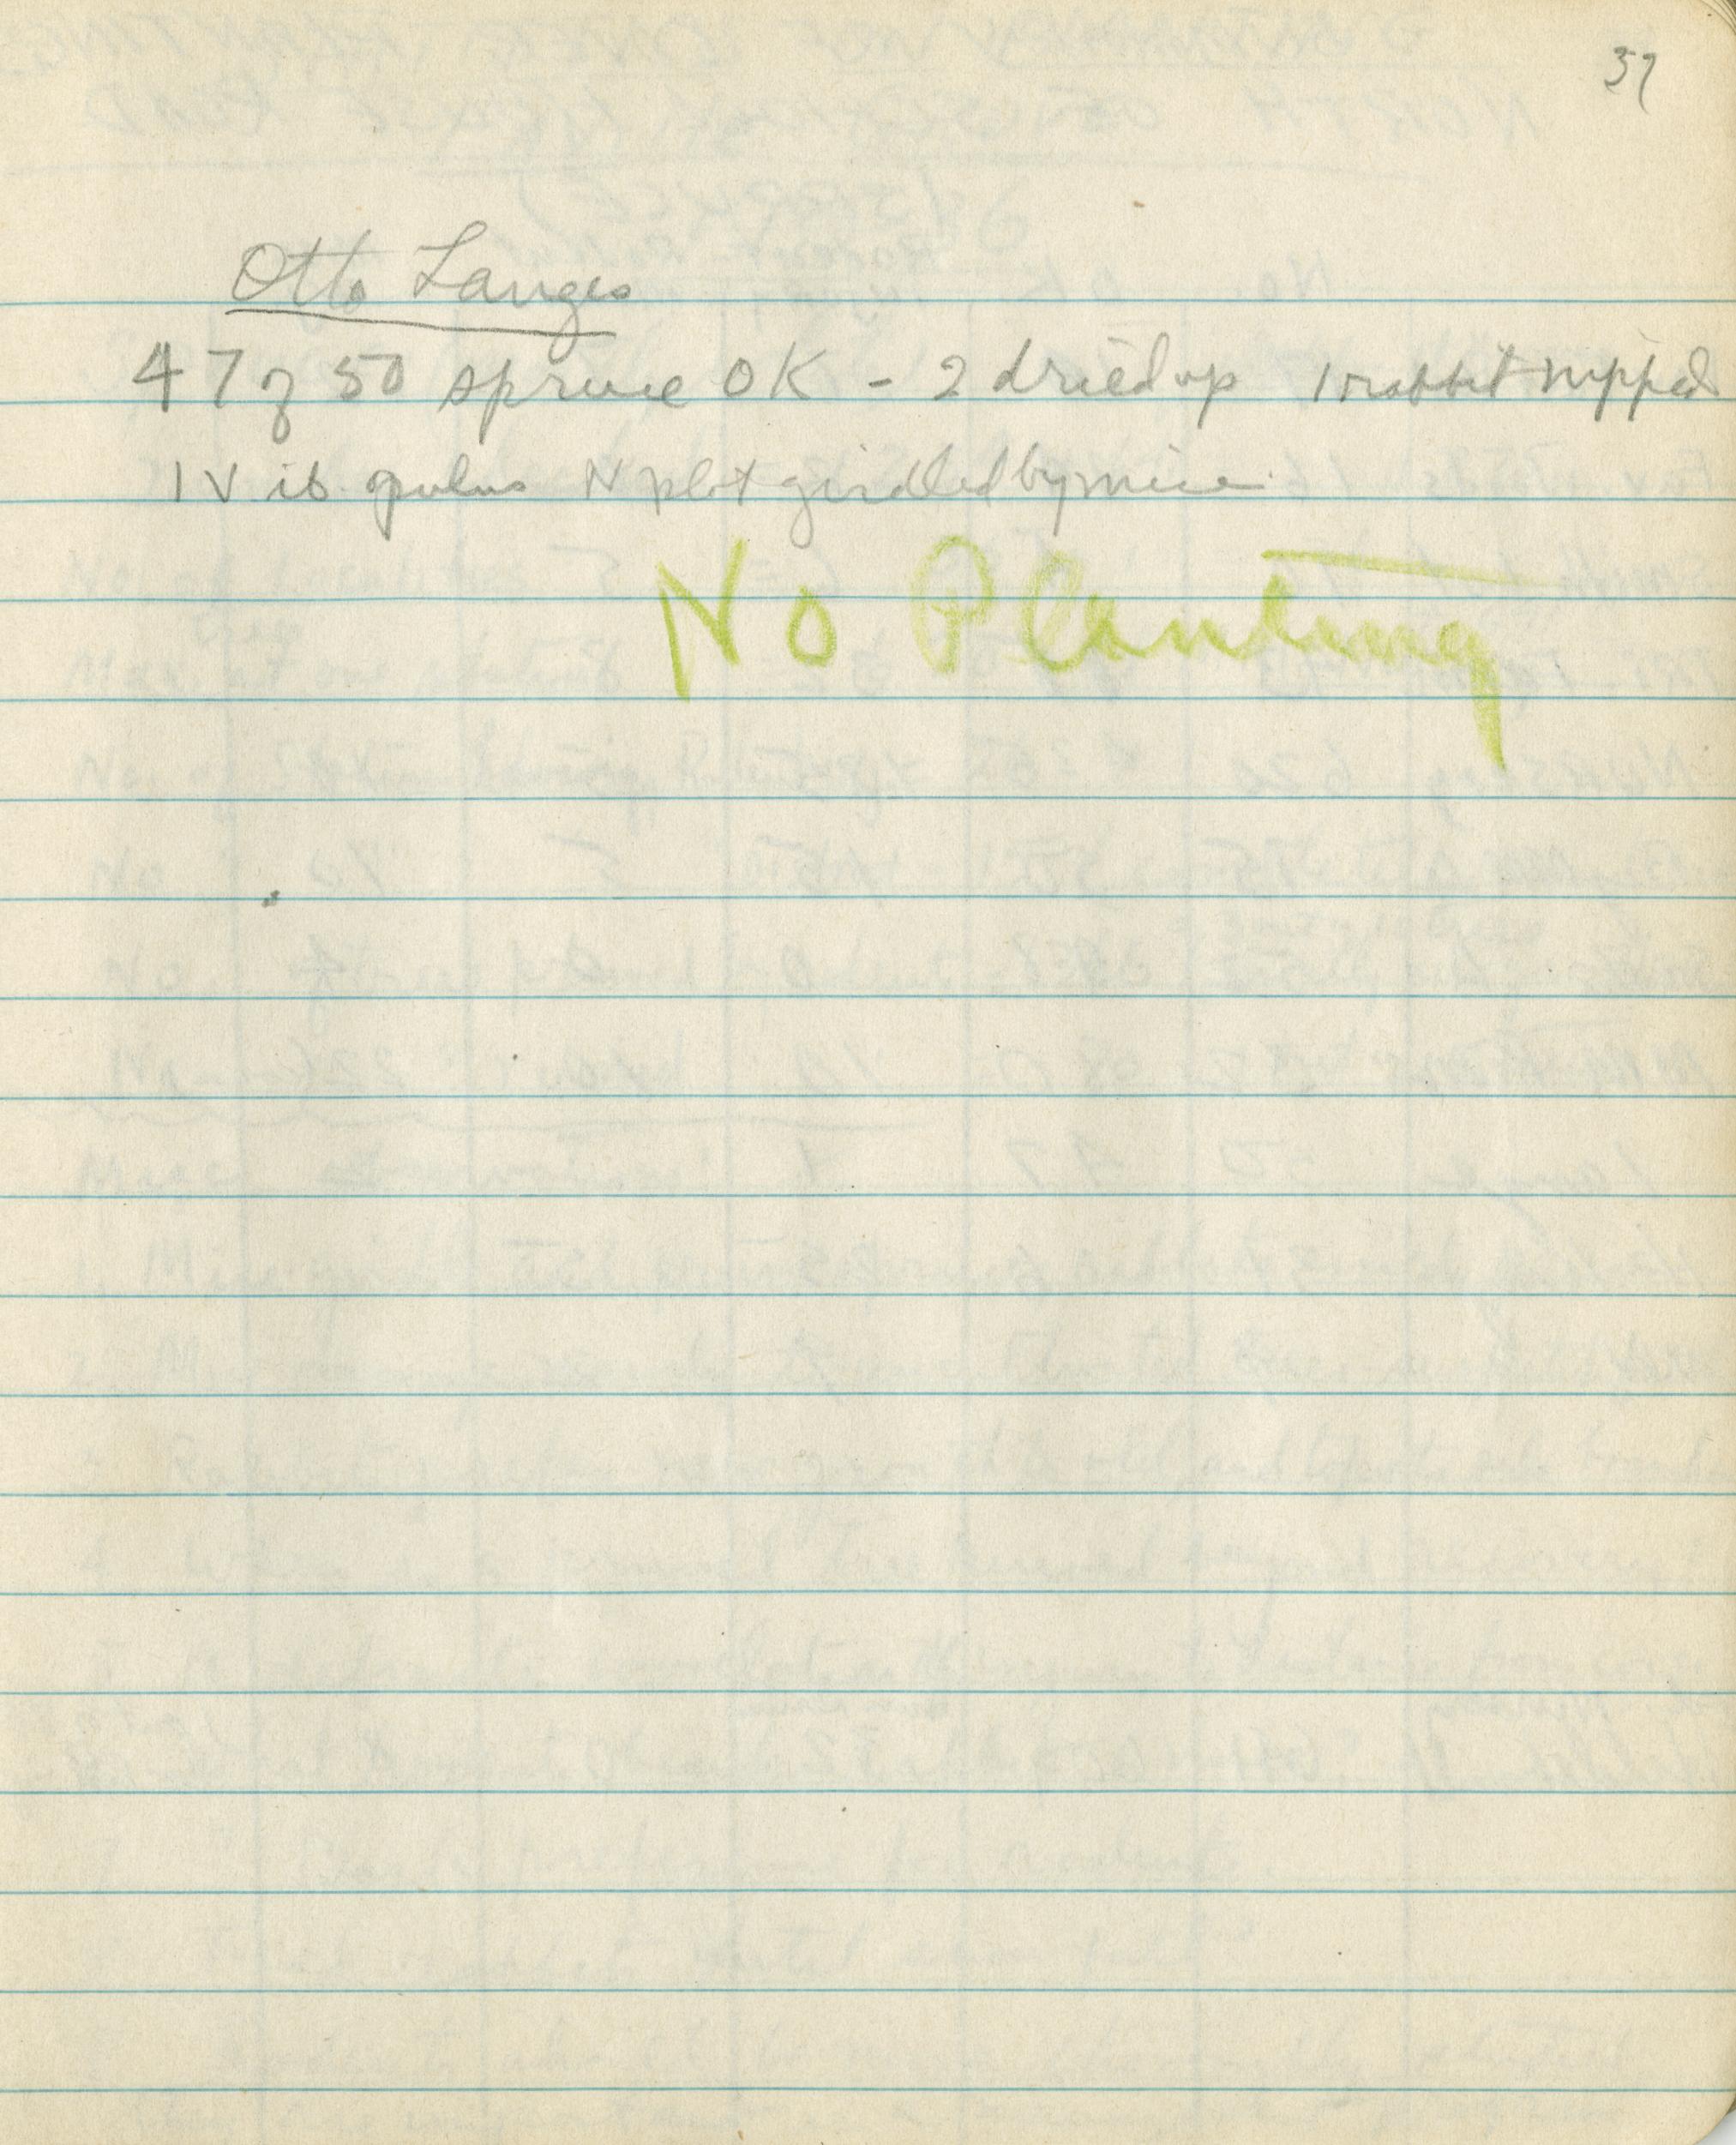 37
Otto Langes
47 of 50 spruce OK - 2 dried up 1 rabbit nipped
1 Vib opulus N plot girdled by mice
No Planting